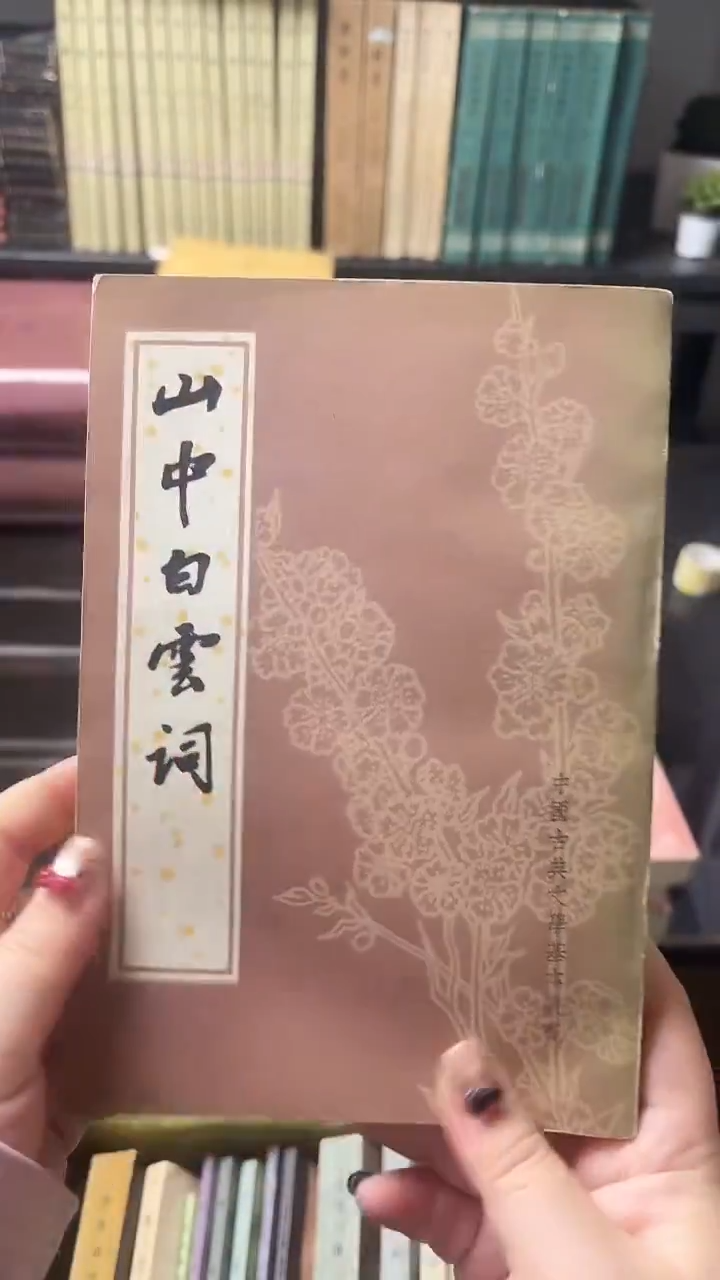 山中白雲词
中國古典文學基本叢書